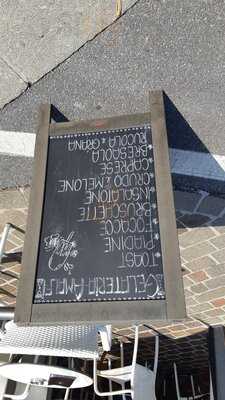 GELATERIA
* TOAST
* PIADINE
* FOCACCE
* BRUSCHETTE
* INSALATONE
* CRUDO & MELONE
* CAPRESE
* BRESAOLA
RUCOLA & GRANA